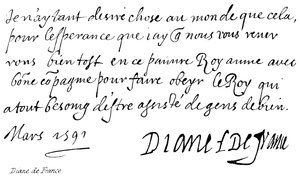 Je n'aytant desiré chose au monde que cela,
pour lesperance que iay q nous vous reuer
vous bientost en ce pauure Royaume auec
bōne cōpagnie pour faire obeyr le Roy qui
a tout besong d'estre assisté de gens de bien.
Mars 1591 Diane L De france
Diane de France